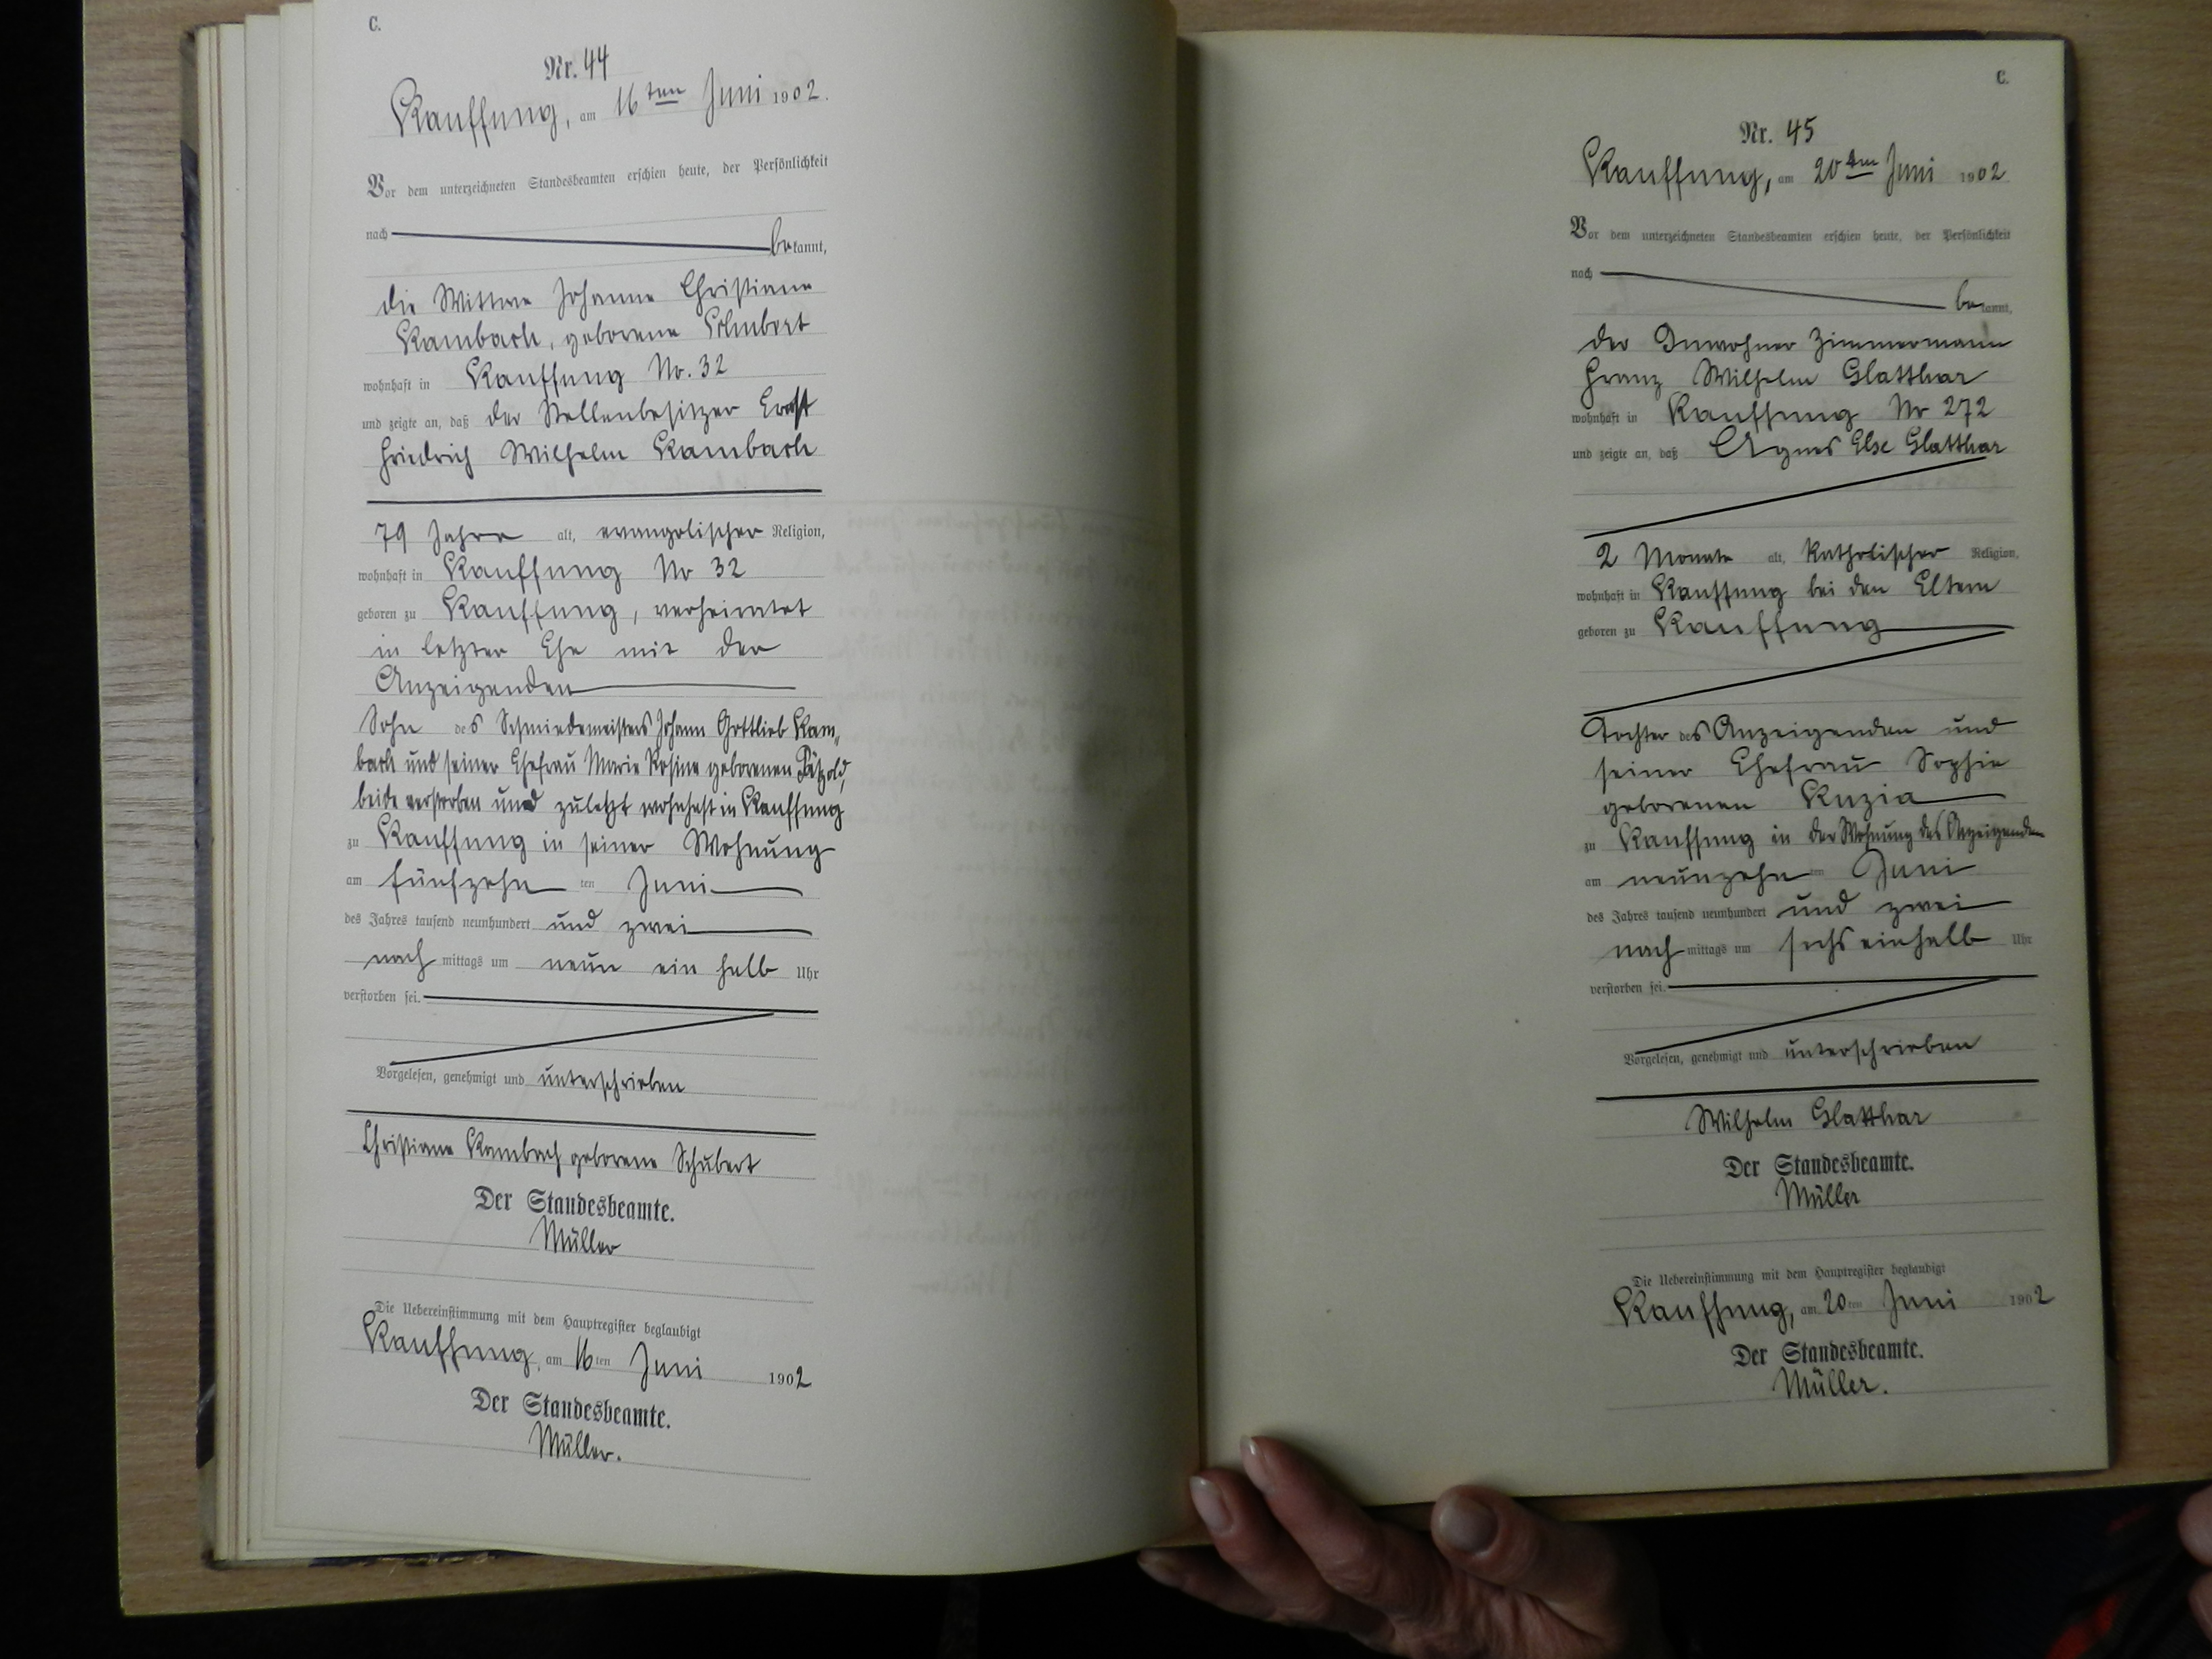 C.
Nr. 44
Kauffung, am 16ten Juni 1902.
Vor dem unterzeichneten Standesbeamten erschien heute, der Persönlichkeit
nach bekannt,
die Wittwe Johanne Christiane
Kambach, geborene Schubert
wohnhaft in Kauffung No. 32
und zeigte an, daß der Stellenbesitzer Ernst
Friedrich Wilhelm Kambach
79 Jahre alt, evangelischer Religion,
wohnhaft in Kauffung No 32
geboren zu Kauffung, verheiratet
in letzter Ehe mit der
Anzeigenden
Sohn des Schmiedemeisters Johann Gottlieb Kam„
bach und seiner Ehefrau Marie Rosine geborenen Pätzold,
beide verstorben und zuletzt wohnhaft in Kauffung
zu Kauffung in seiner Wohnung
am fünfzehn ten Juni
des Jahres tausend neunhundert und zwei
nach mittags um neun ein halb Uhr
verstorben sei.
Vorgelesen, genehmigt und unterschrieben
Christiane Kambach geborene Schubert
Der Standesbeamte.
Müller
Die Uebereinstimmung mit dem Hauptregister beglaubigt
Kauffung, am 16ten Juni 1902
Der Standesbeamte.
Müller.
C.
Nr. 45
Kauffung, am 20ten Juni 1902
Vor dem unterzeichneten Standesbeamten erschien heute, der Persönlichkeit
nach bekannt,
der Inwohner Zimmermann
Franz Wilhelm Glatthar
wohnhaft in Kauffung Nr 272
und zeigte an, daß Agnes Else Glatthar
2 Monate alt, katholischer Religion,
wohnhaft in Kauffung bei den Eltern
geboren zu Kauffung
Tochter des Anzeigenden und
seiner Ehefrau Sophie
geborenen Kuzia
zu Kauffung in der Wohnung des Anzeigenden
am neunzehn ten Juni
des Jahres tausend neunhundert und zwei
nach mittags um sechs einhalb Uhr
verstorben sei.
Vorgelesen, genehmigt und unterschrieben
Wilhelm Glatthar
Der Standesbeamte.
Müller
Die Uebereinstimmung mit dem Hauptregister beglaubigt
Kauffung, am 20ten Juni 1902
Der Standesbeamte.
Müller.